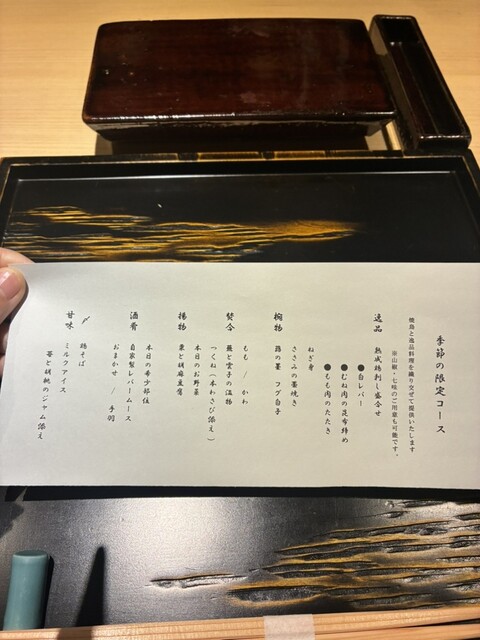 季節の限定コース
焼鳥と逸品料理を織り交ぜて提供いたします
※山椒・七味のご用意も可能です。
逸品 熟成鶏刺し盛合せ
●白レバー
●むね肉の昆布締め
●もも肉のたたき
ねぎ身
ささみの藁焼き
椀物 蕗の薹 フグ白子
もも / かわ
焚合 蕪と雲子の温物
つくね(本わさび添え)
本日のお野菜
揚物 東と胡麻豆腐
本日の希少部位
酒肴 自家製レバームース
おまかせ / 手羽
〆 鶏そば
甘味 ミルクアイス
苺と胡桃のジャム添え